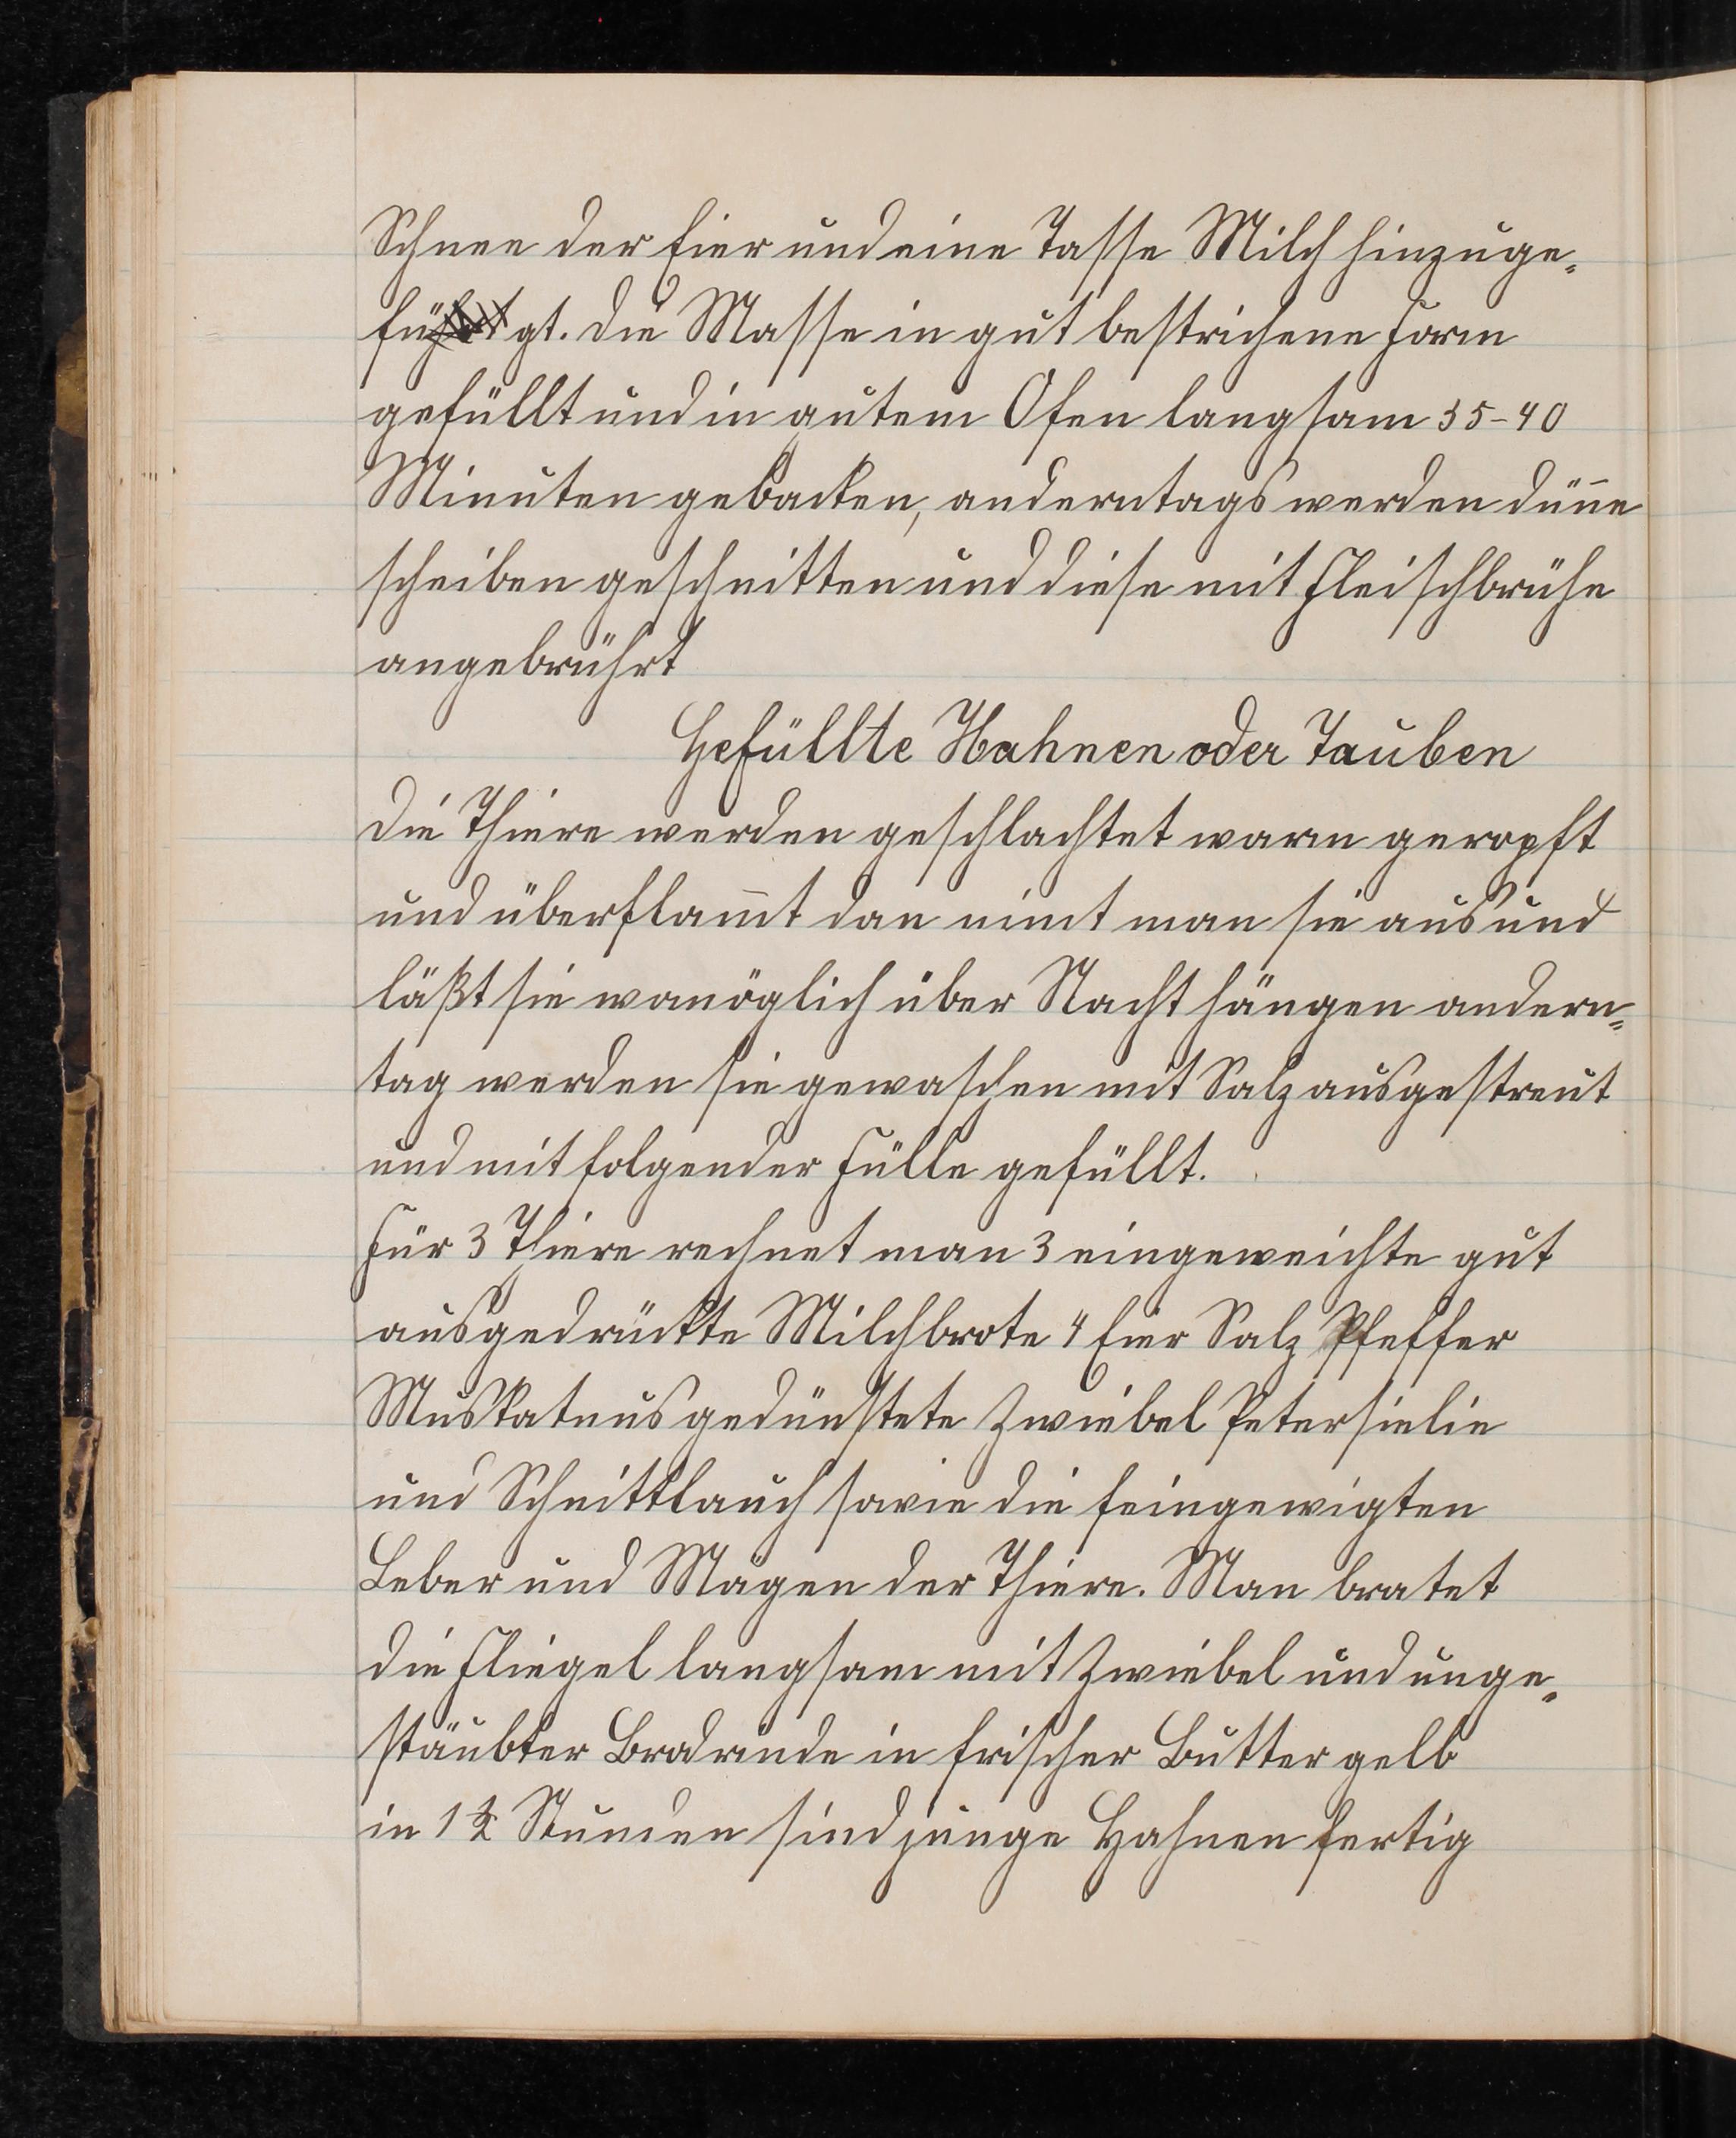 Schnee der Eier und eine Tasse Milch hinzuge-
fügt. die Masse in gut bestrichene Form
gefüllt und in gutem Ofen langsam 35-40
Minuten gebacken, anderntags werden dün̄e
scheiben geschnitten und diese mit Fleischbrühe
angebrührt
Gefüllte Hahnen oder Tauben
die Thiere werden geschlachtet warm geropft
und überflam̄t dan nimt man sie aus und
läßt sie womöglich über Nacht hängen andern-
tag werden sie gewaschen mit Salz ausgestreut
und mit folgender Fülle gefüllt.
Für 3 Thiere rechnet man 3 eingeweichte gut
ausgedrückte Milchbrote 4 Eier Salz Pfeffer
Muskatnus gedünstete Zwiebel Petersielie
und Schnittlauch sowie die feingewigten
Leber und Mägen der Thiere. Man bratet
die Fliegel langsam mit Zwiebel und unge-
stäubter Brodrinde in frischer Butter gelb
in 1½ Stunden sind junge Hahnen fertig